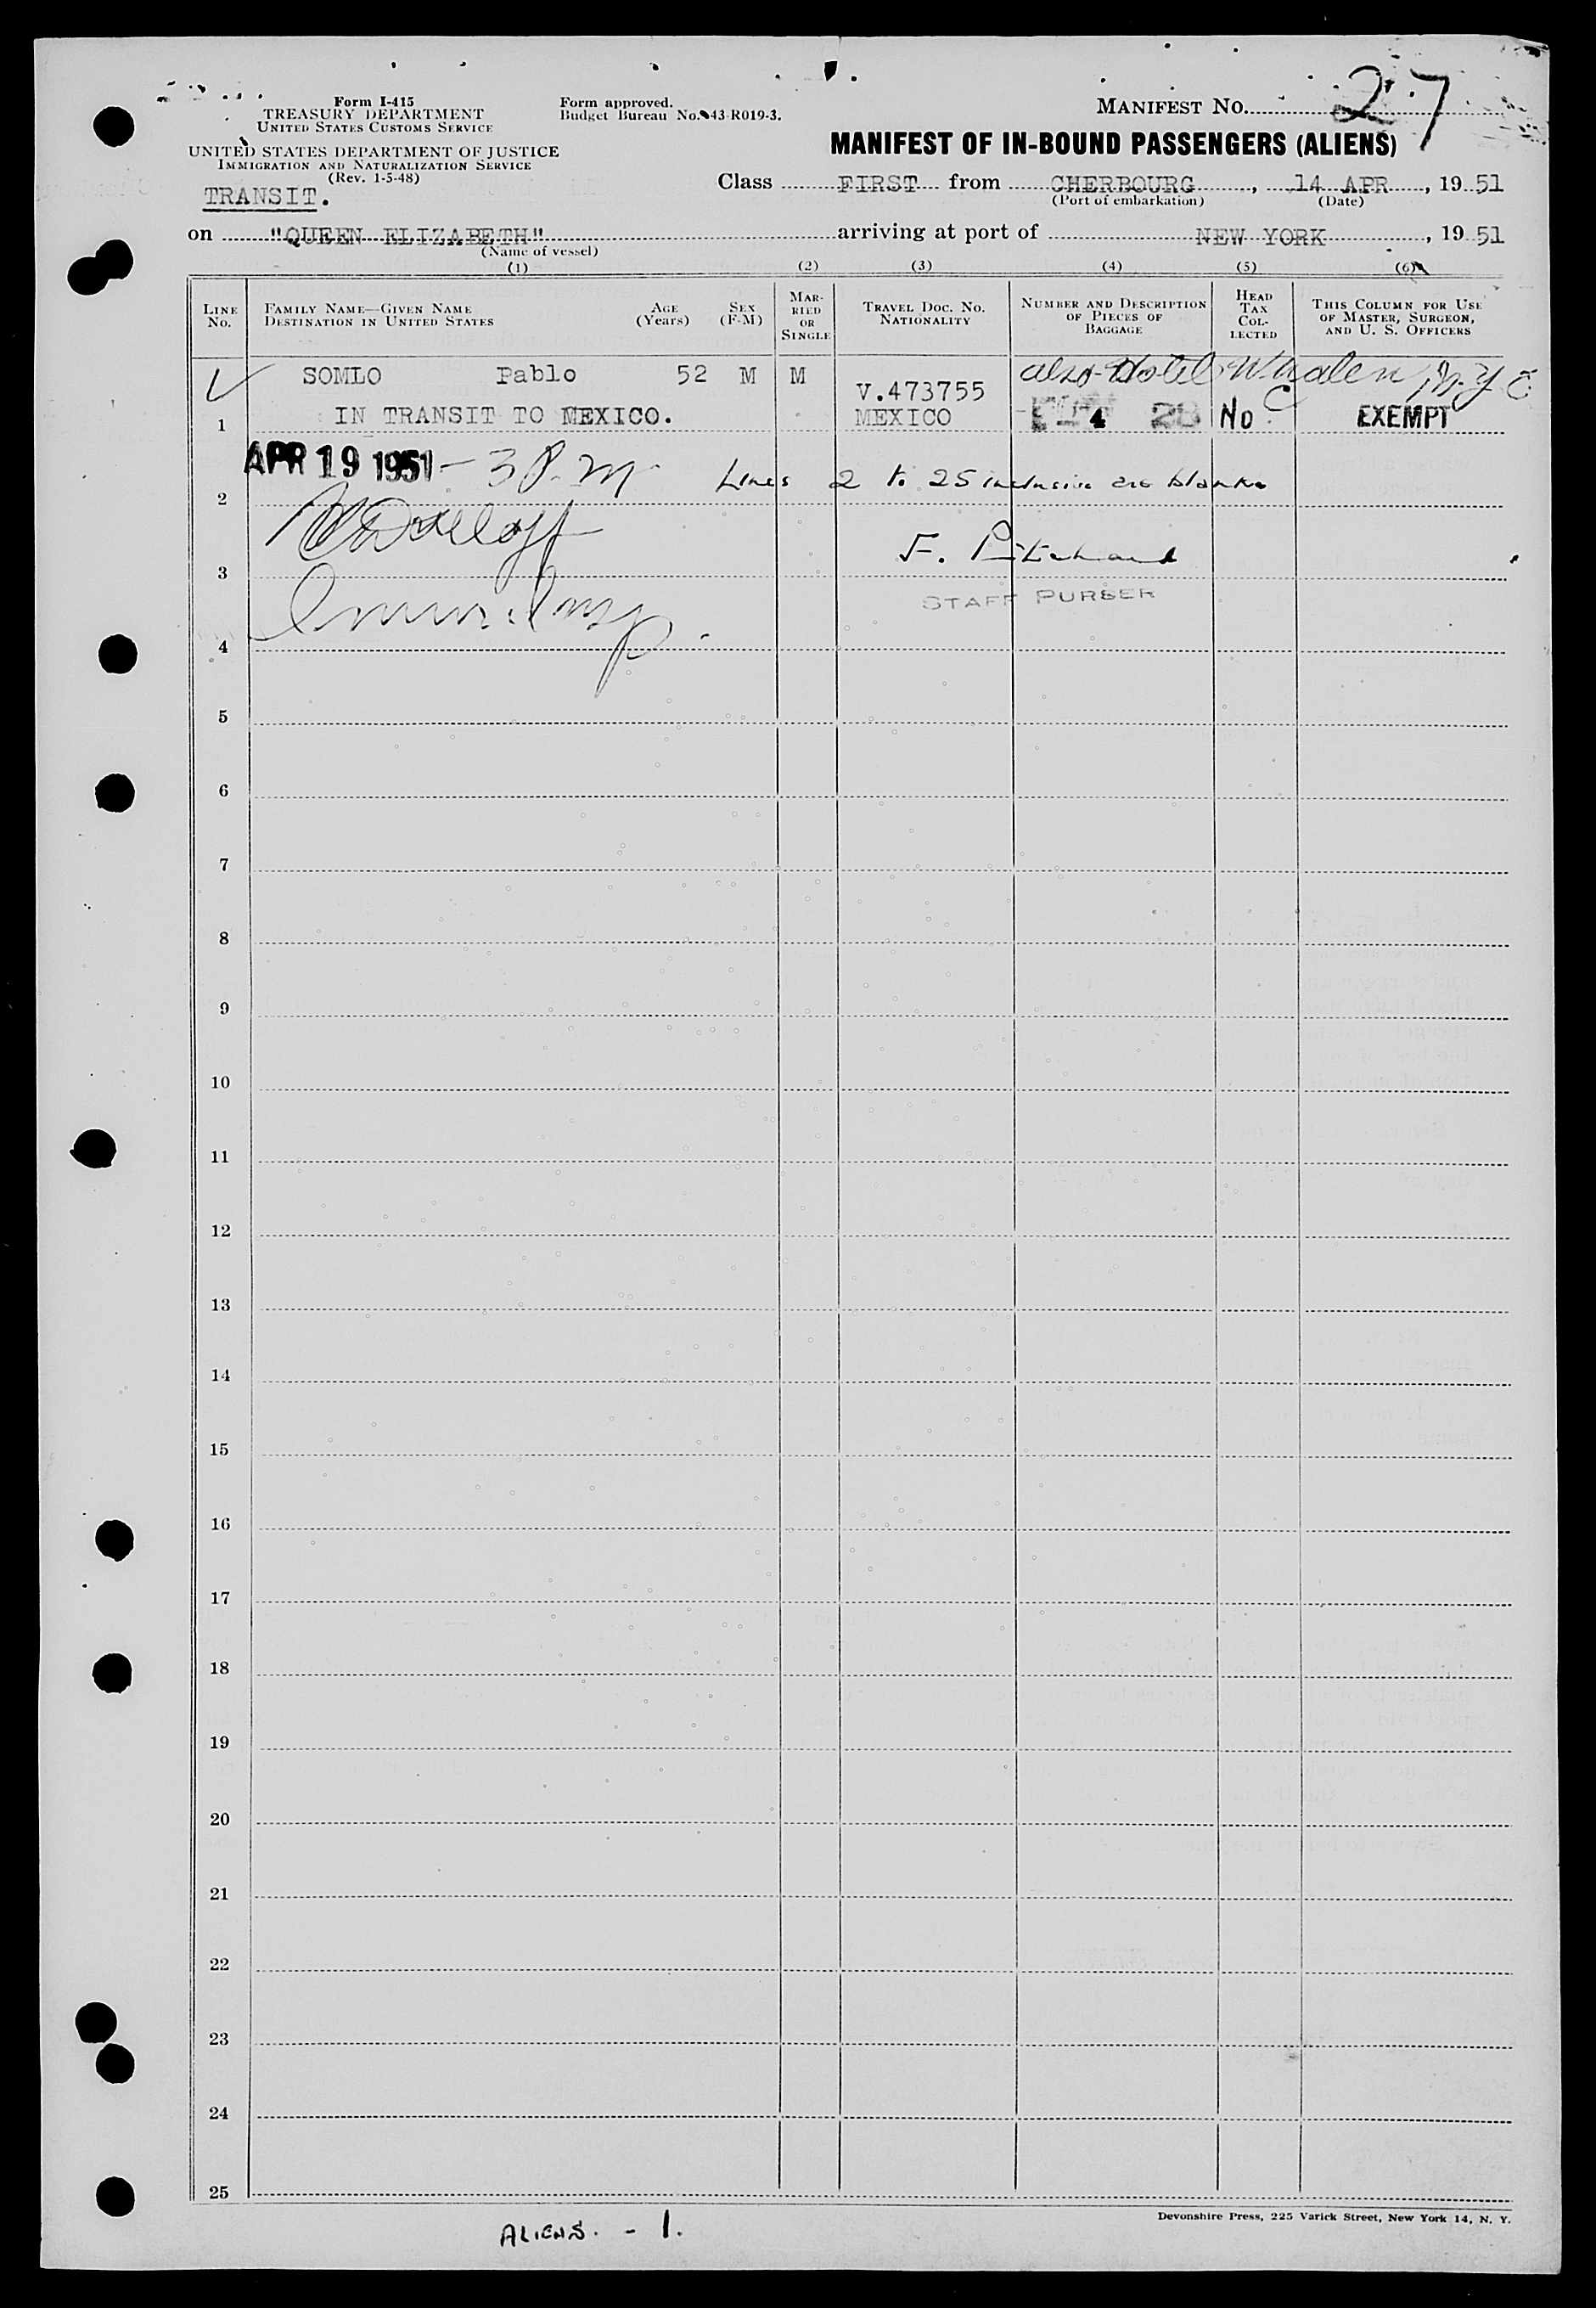 27
Form I-415
TREASURY DEPARTMENT
UNITED STATES CUSTOMS SERVICE
Form approved.
Budget Bureau No. 43-R019-3.
MANIFEST NO.
UNITED STATES DEPARTMENT OF JUSTICE
IMMIGRATION AND NATURALIZATION SERVICE
(Rev. 1-5-48)
MANIFEST OF IN-BOUND PASSENGERS (ALIENS)
TRANSIT.
Class FIRST from CHERBOURG, 14 APR, 19 51
(Port of embarkation) (Date)
on "QUEEN ELIZABETH" arriving at port of NEW YORK, 19 51
(Name of vessel)
(1) (2) (3) (4) (5) (6)
LINE NO.
FAMILY NAME—GIVEN NAME
DESTINATION IN UNITED STATES
AGE (Years)
SEX (F-M)
MARRIED OR SINGLE
TRAVEL DOC. NO.
NATIONALITY
NUMBER AND DESCRIPTION OF PIECES OF BAGGAGE
HEAD TAX COLLECTED
THIS COLUMN FOR USE OF MASTER, SURGEON, AND U. S. OFFICERS
also Hotel N.Y.C.
SOMLO Pablo 52 M M V.473755
1 IN TRANSIT TO MEXICO. MEXICO 4 28 No EXEMPT
APR 19 1951 - 3 P.M.
Lines 2 to 25 inclusive are blank
2
F. Pritchard
3
STAFF PURSER
Imm. Insp.
4
5
6
7
8
9
10
11
12
13
14
15
16
17
18
19
20
21
22
23
24
25
Devonshire Press, 225 Varick Street, New York 14, N. Y.
ALIENS. - 1.